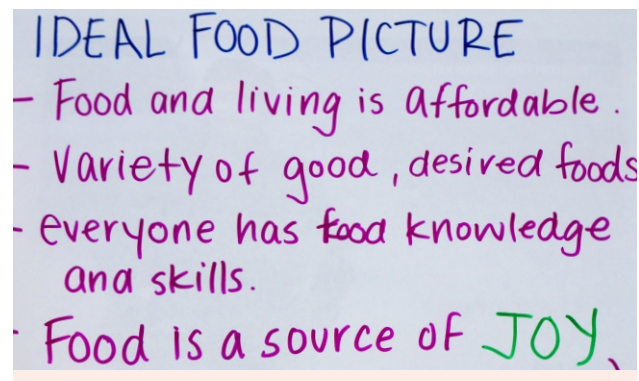 IDEAL FOOD PICTURE
- Food and living is affordable.
- Variety of good, desired foods
- everyone has food knowledge
and skills.
- Food is a source of JOY,